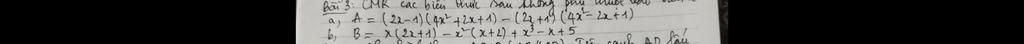 Bài 3: CMR các biểu thức sau không phụ thuộc vào
a, A = (2x-1)(4x²+2x+1) - (2x+1)(4x²-2x+1)
b, B = x(2x+1) - x²(x+2) + x³ - x + 5